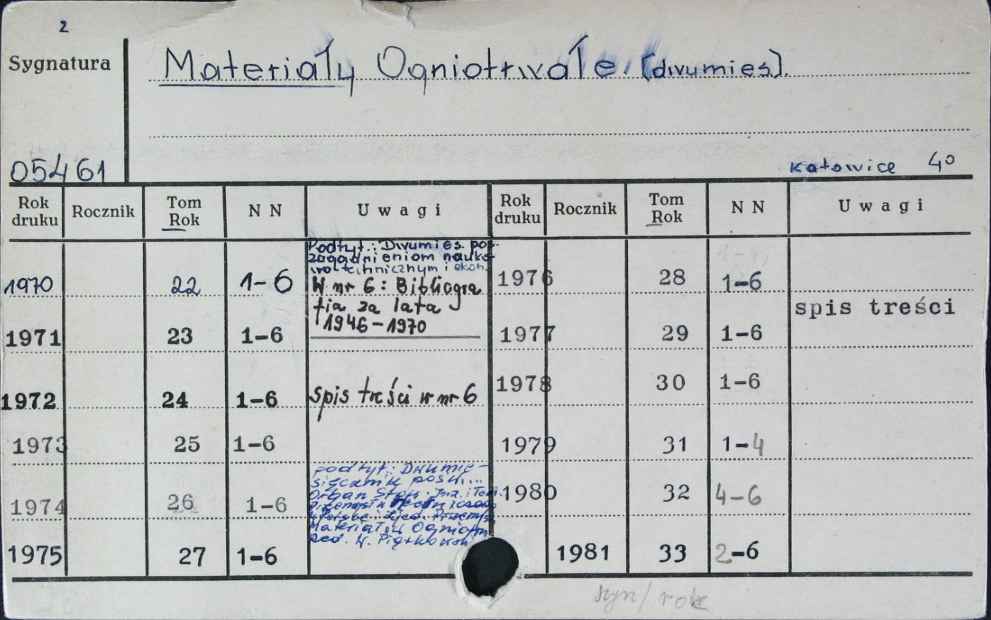 2
Sygnatura
Materiały Ogniotrwałe. (dwumies).
05461
Katowice 4º
Rok druku Rocznik Tom Rok N N Uwagi Rok druku Rocznik Tom Rok N N Uwagi
1970 22 1-6
Podtyt.: Dwumies. poś.
zagadnieniom nauko-
wo technicznym i ekon.
W nr 6: Bibliogra
fia za lata
1946-1970
1971 23 1-6
1972 24 1-6 spis treści w nr 6
1973 25 1-6
1974 26 1-6
podtyt.: Dwumie-
sięcznik pośw...
Organ Stow. Inż. i Tech.
Materiałów Ogniotr.
Red. W.
1975 27 1-6
1976 28 1-6
spis treści
1977 29 1-6
1978 30 1-6
1979 31 1-4
1980 32 4-6
1981 33 2-6
syn/rok